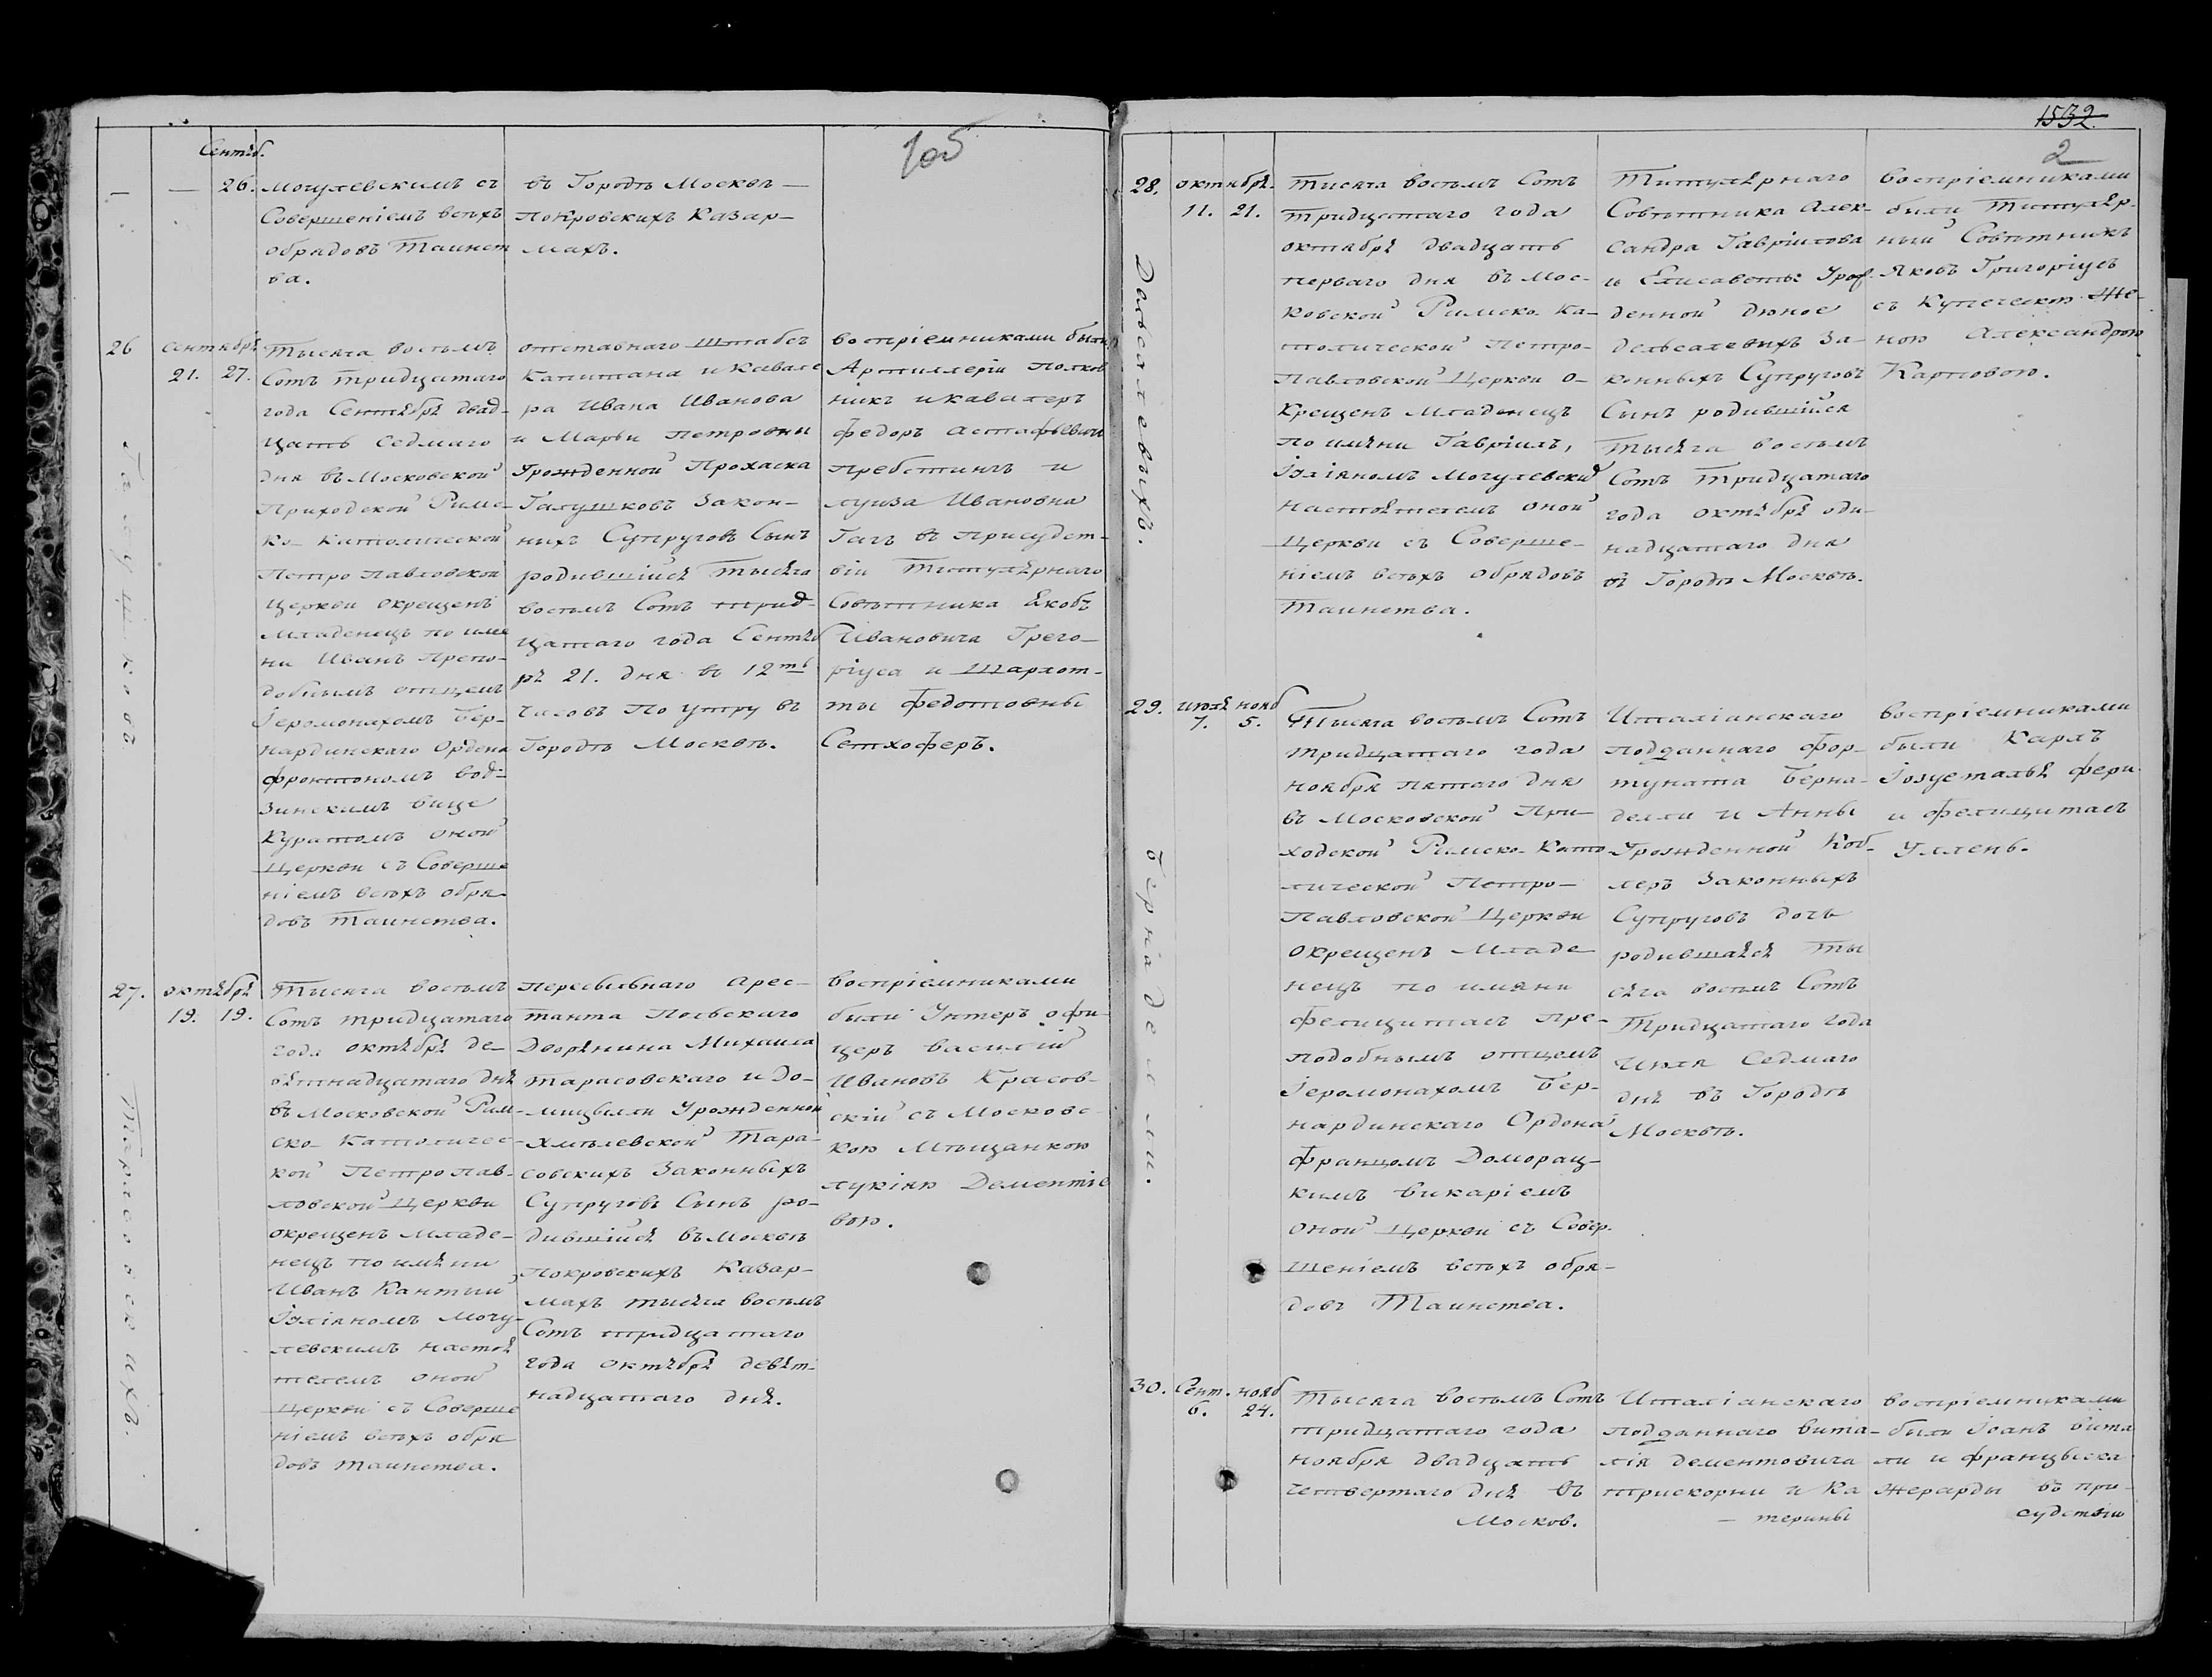 Сентяб.
26.
Могулевскимъ съ
Совершеніемъ всѣхъ
обрядовъ Таинст
ва.
въ Городѣ Москвѣ —
Покровскихъ Казар—
махъ.
26
Сентября
21. 27.
Галушковъ
Тысяча восемь
Сотъ тридцатаго
года Сентября двад-
цать седмаго
дня въ Московской
Приходской Римс-
ко- Католической
Петро Павловской
Церкви окрещенъ
Младенецъ по име
ни Иванъ Препо-
добнымъ отцемъ
Іеромонахомъ Бер-
нардинскаго Ордена
Вице
Куратомъ оной
Церкви съ Соверше
ніемъ всѣхъ обря-
довъ Таинства.
отставнаго Штабсъ
Капитана и Кавале
ра Ивана Иванова
и Марьи Петровны
Урожденной Прохаска
Галушковъ Закон—
ныхъ Супруговъ Сынъ
родившійся тысяча
восемь Сотъ трид-
цатаго года Сентяб
ря 21. дня въ 12ть
часовъ По утру въ
Городѣ Москвѣ.
воспріемниками были
Артиллеріи Полков
никъ и кавалеръ
Федоръ Астафьевичь
Пребстингъ и
Луиза Ивановна
Гагъ въ Присудст-
віи Титулярнаго
Совѣтника Якобъ
Ивановича Грего—
ріуса и Шарлот-
ты Федотовны
Сетхоферъ.
27.
октября
19. 19.
Тарасовскихъ.
Тысяча восемь
Сотъ тридцатаго
года октября де—
вятнадцатаго дня
въ Московской Рим-
ско- Католичес-
кой Петро Пав-
ловской Церкви
окрещенъ младе—
нецъ по имяни
Иванъ Кантий
Іуліяномъ Могу-
левскимъ настоя
телемъ оной
Церкви съ Соверше
ніемъ всѣхъ обря
довъ таинства.
пересыльнаго Арес—
танта Польскаго
Дворянина Михаила
Тарасовскаго и До-
мицыли Урожденной
Хмѣлевской Тара-
совскихъ Законныхъ
Супруговъ Сынъ ро-
дившійся въ Москвѣ
Покровскихъ Казар—
махъ тысяча восемь
Сотъ тридцатаго
года октября девят-
надцатаго дня.
воспріемниками
были Унтеръ офи-
церъ Василій
Ивановъ Красов-
скій съ Московс-
кою Мѣщанкою
Лукіяю Дементіе
вою.
1532
2
28.
октября.
11. 21.
Дельсалевыхъ.
Тысяча восемь Сотъ
тридцатаго года
октября двадцать
перваго дня въ Мос-
ковской Римско- Ка—
толической Петро-
Павловской Церкви о—
крещенъ Младенецъ
по имяни Гавріилъ,
Іуліяномъ Могулевским
настоятелемъ оной
Церкви съ Соверше—
ніемъ всѣхъ обрядовъ
Таинства.
Титулярнаго
Совѣтника Алек-
сандра Гаврілова
и Елисаветы Урож-
денной Дюное
Дельсалевыхъ За-
конныхъ Супруговъ
Сынъ родившійся
Тысяча восемь
Сотъ Тридцатаго
года октября оди-
надцатаго дня
въ Городѣ Москвѣ.
Воспріемниками
были Титуляр-
ный Совѣтникъ
Яковъ Григоріусъ
съ Купеческою Же-
ною Александрою
Карповою.
29.
Июля нояб
7. 5.
Бернадели.
Тысяча восемь Сотъ
тридцатаго года
ноября пятаго дня
въ Московской При—
ходской Римско- Като-
лической Петро—
Павловской Церкви
окрещенъ Младе—
нецъ по имяни
Фелицитасъ Пре-
подобнымъ отцомъ
Іеромонахомъ Бер-
нардинскаго Ордена
Францомъ Доморац-
кимъ Викаріемъ
оной Церкви съ Совер-
шеніемъ всѣхъ обря—
довъ Таинства.
Италіанскаго
подданнаго Фор-
туната Берна-
делли и Анны
Урожденной Коб-
леръ Законныхъ
Супруговъ дочь
родившаяся Ты
сяча восемь Сотъ
Тридцатаго года
Июля Седмаго
дня въ Городѣ
Москвѣ.
Воспріемниками
были Карлъ
Фери
и Фелицитасъ
Уллень.
30.
Сент. нояб
6. 24.
Тысяча восемь Сотъ
тридцатаго года
ноября двадцать
четвертаго дня въ
Москов.
Италіанскаго
подданнаго Вита-
лія Дементовича
Трискорни и Ка
— терины
воспріемниками
были Іоанъ Вита
ли и Францыска
Жерарды въ при-
судствіи